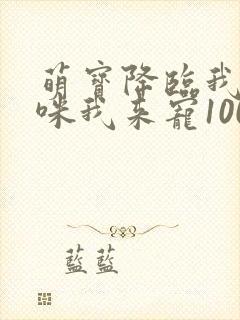 萌寶降臨我
咪我来寵100
藍藍